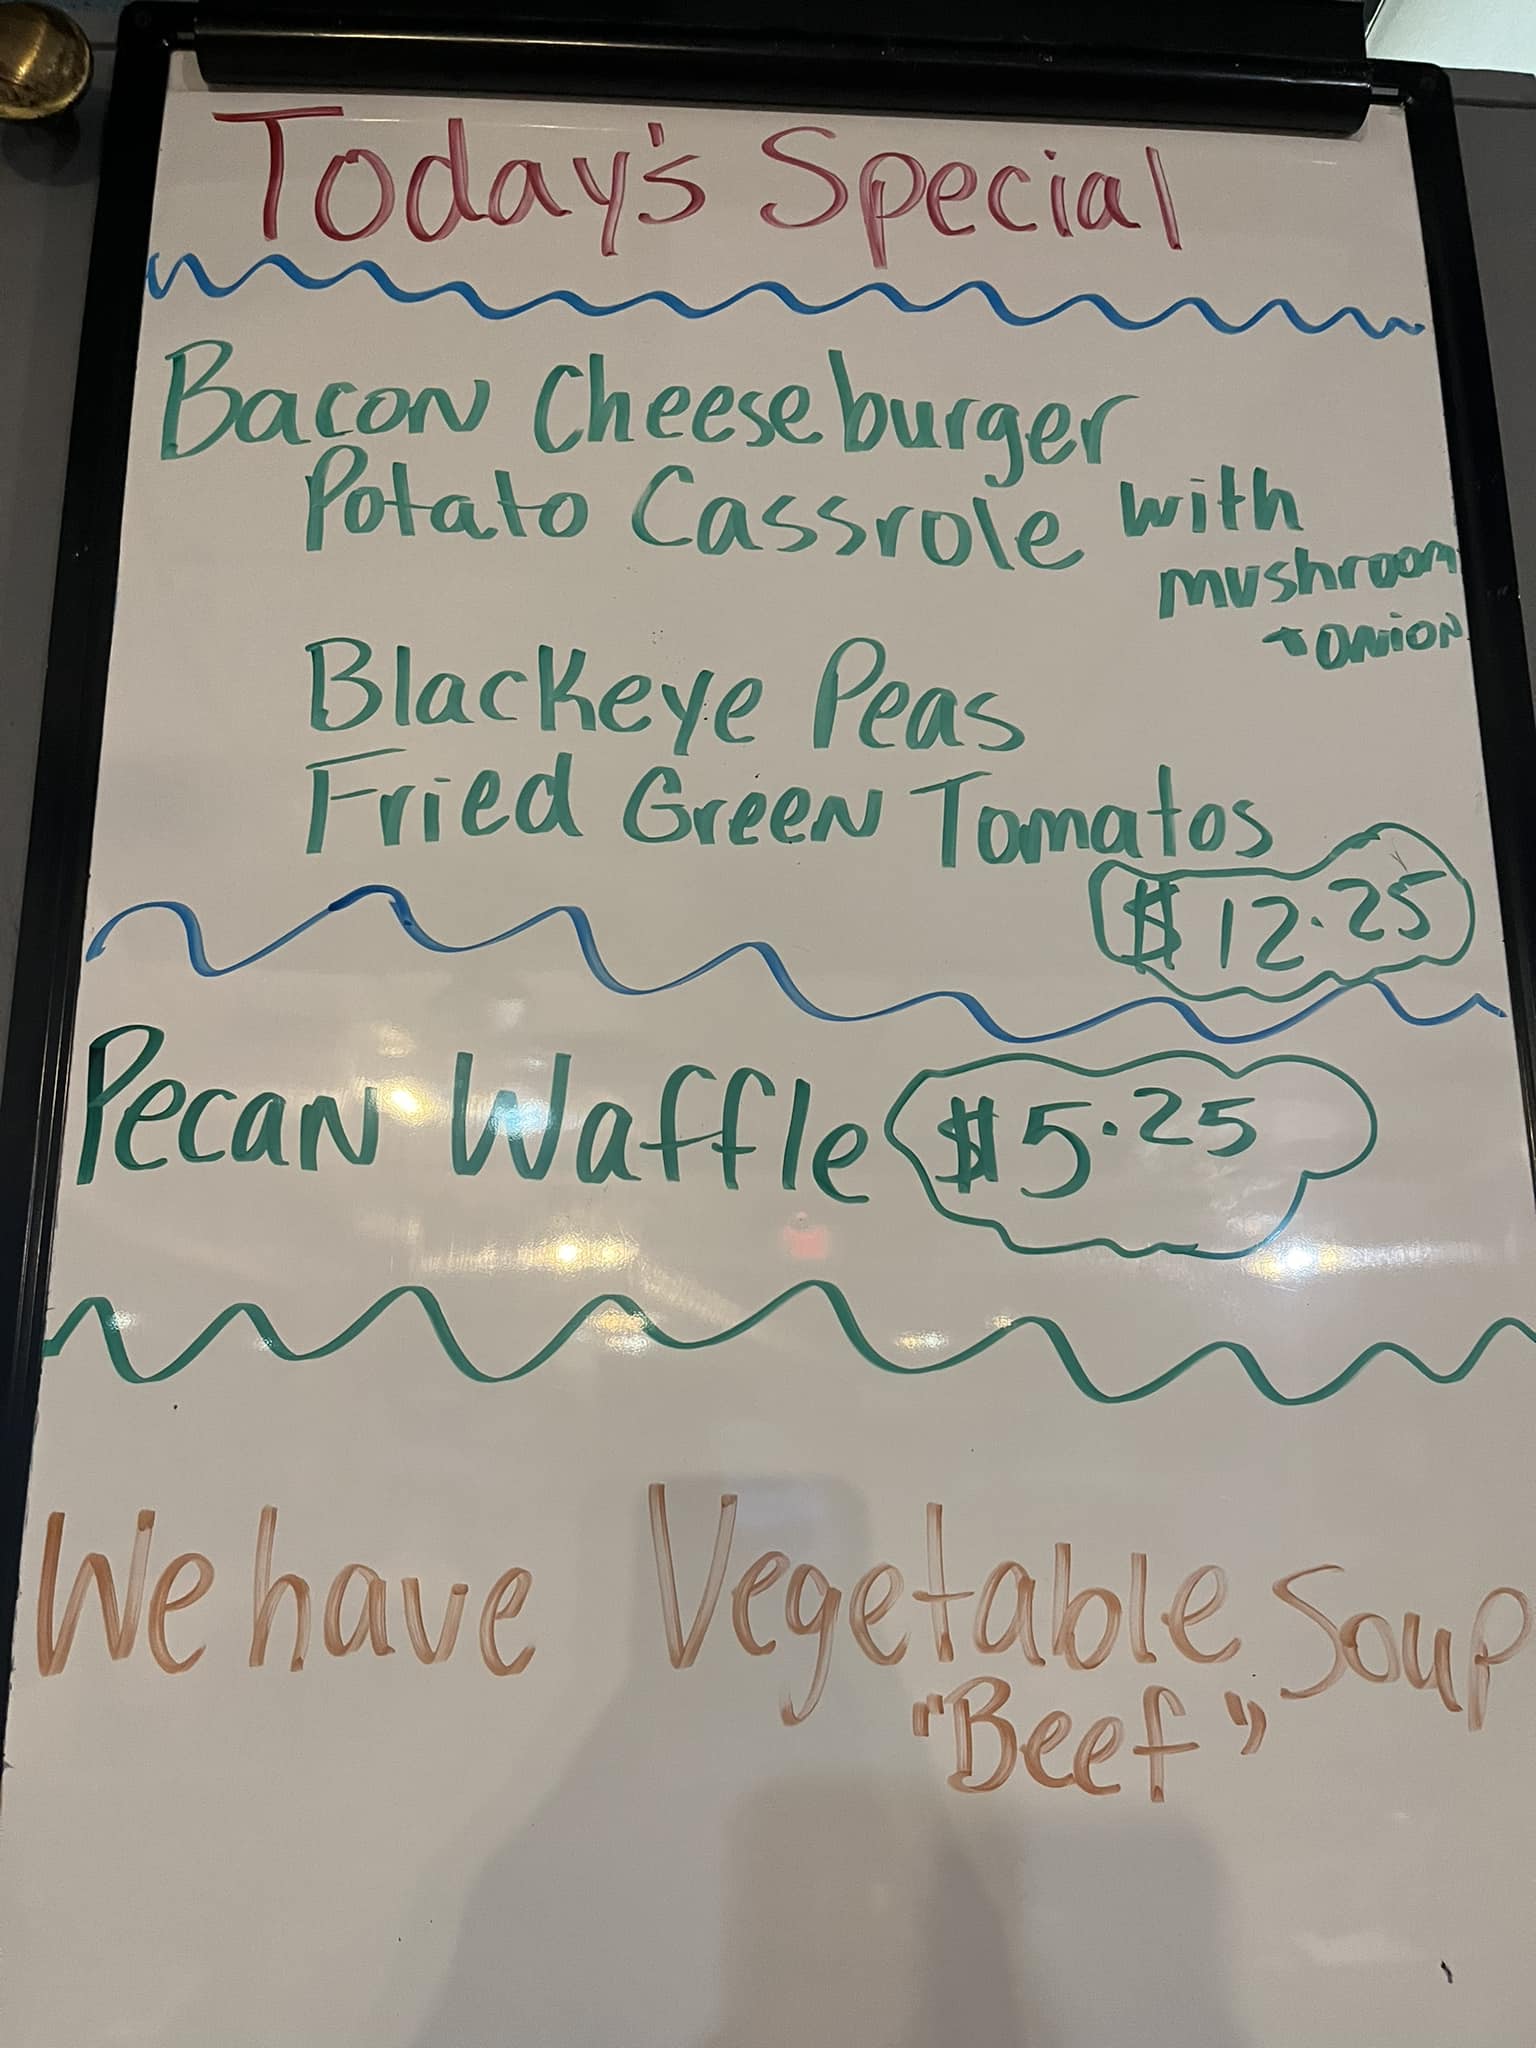 Today's Special
Bacon Cheeseburger
Potato Cassrole with
mushroom
+ onion
Blackeye Peas
Fried Green Tomatos
$12.25
Pecan Waffle $5.25
We have Vegetable Soup
"Beef"